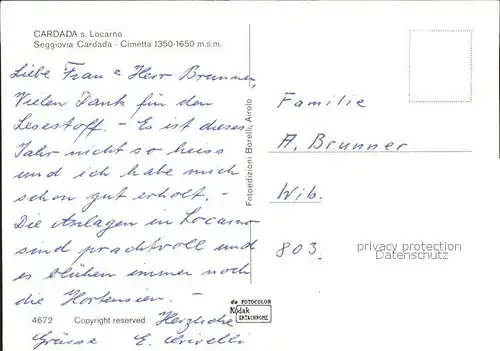 CARDADA s. Locarno
Seggiovia Cardada - Cimetta 1350-1650 m.s.m.
Liebe Frau & Herr Brunner,
Vielen Dank für den
Lesestoff. - Es ist dieses
Jahr nicht so heiss
und ich habe mich
schon gut erholt. -
Die Anlagen in Locarno
sind prachtvoll und
es blühen immer noch
die Hortensien. -
Herzliche
Grüsse E.
4672 Copyright reserved
Fotoedizioni Borelli, Airolo
da FOTOCOLOR
Kodak
EKTACHROME
Familie
A. Brunner
Wib.
803
privacy protection
Datenschutz